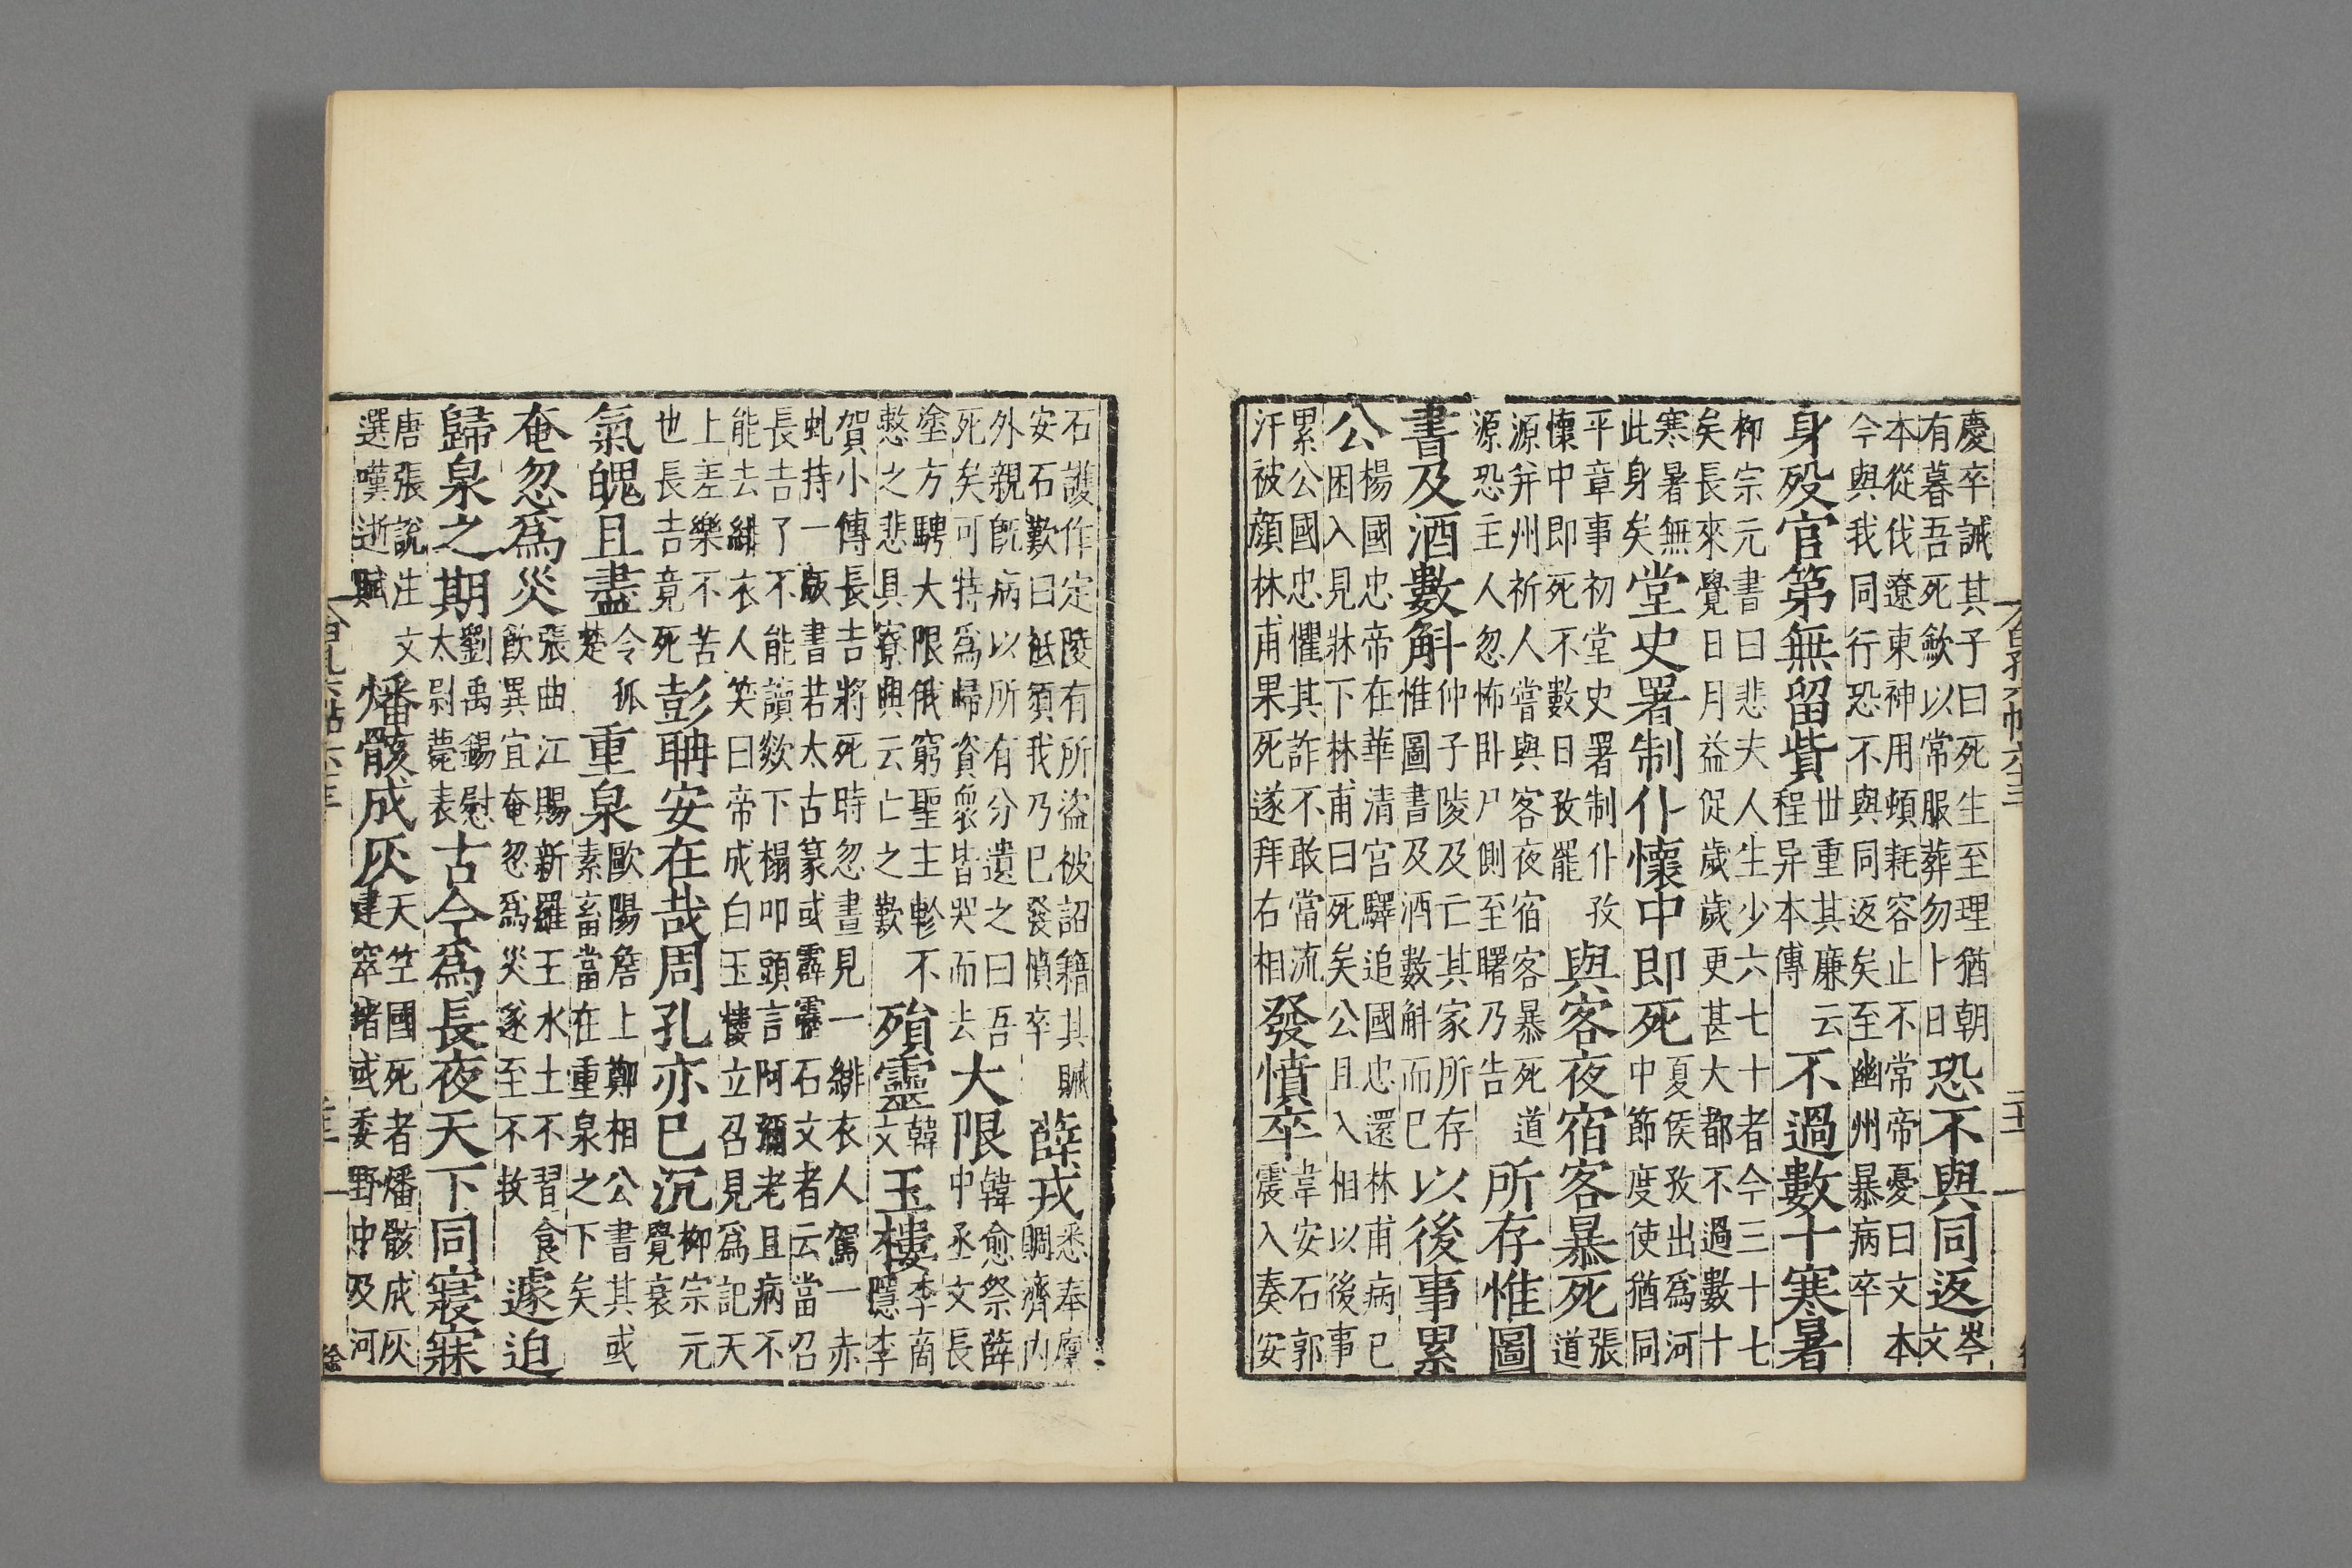 慶卒誡其子曰死生至理猶朝
有暮吾死歛以常服葬勿卜日
恐不與同返
岑
文
本從伐遼東神用頓耗容止不常帝憂曰文本
今與我同行恐不與同返矣至幽州暴病卒
身殁官第無留貲
世重其廉云
程异本傳
不過數十寒暑
柳宗元書曰悲夫人生少六七十者今三十七
矣長來覺日月益促歲歲更甚大都不過數十
寒暑無
此身矣
堂史署制仆懷中即死
夏侯孜出爲河
中節度使猶同
平章事初堂史署制仆孜
懷中即死不數日孜罷
與客夜宿客暴死
張
道
源并州祈人嘗與客夜宿客暴死道
源恐主人忽怖卧尸側至曙乃告
所存惟圖
書及酒數斛
仲子陵及亡其家所存
惟圖書及酒數斛而已
以後事累
公
楊國忠帝在華清宮驛追國忠還林甫病已
困入見牀下林甫曰死矣公且入相以後事
累公國忠懼其詐不敢當流
汗被顔林甫果死遂拜右相
發憤卒
韋安石郭
震入奏安
石護作定陵有所盜被詔籍其贓
安石歎曰祗須我乃已發憤卒
薛戎
悉奉廩
賙濟内
外親旣病以所有分遺之曰吾
死矣可特爲歸資衆皆哭而去
大限
韓愈祭薛
中丞文長
塗方騁大限俄窮聖主軫不
慜之悲具寮興云亡之歎
殞靈
韓
文
玉樓
李商
隱李
賀小傳長吉將死時忽晝見一緋衣人駕一赤
虬持一版書若太古篆或霹靂石文者云當召
長吉了不能讀欻下榻叩頭言阿㜷老且病不
能去緋衣人笑曰帝成白玉樓立召見爲記天
上差樂不苦
也長吉竟死
彭聃安在哉周孔亦已沉
柳宗元
覺衰
氣魄且盡
令狐
楚
重泉
歐陽詹上鄭相公書其或
素畜當在重泉之下矣
奄忽爲災
張曲江賜新羅王水土不習食
飲異宜奄忽爲災遂至不救
遽迫
歸泉之期
劉禹錫慰
太尉薨表
古今爲長夜天下同寢寐
唐張說注文
選嘆逝賦
燔骸成灰
天竺國死者燔骸成灰
建窣堵或委野中及河